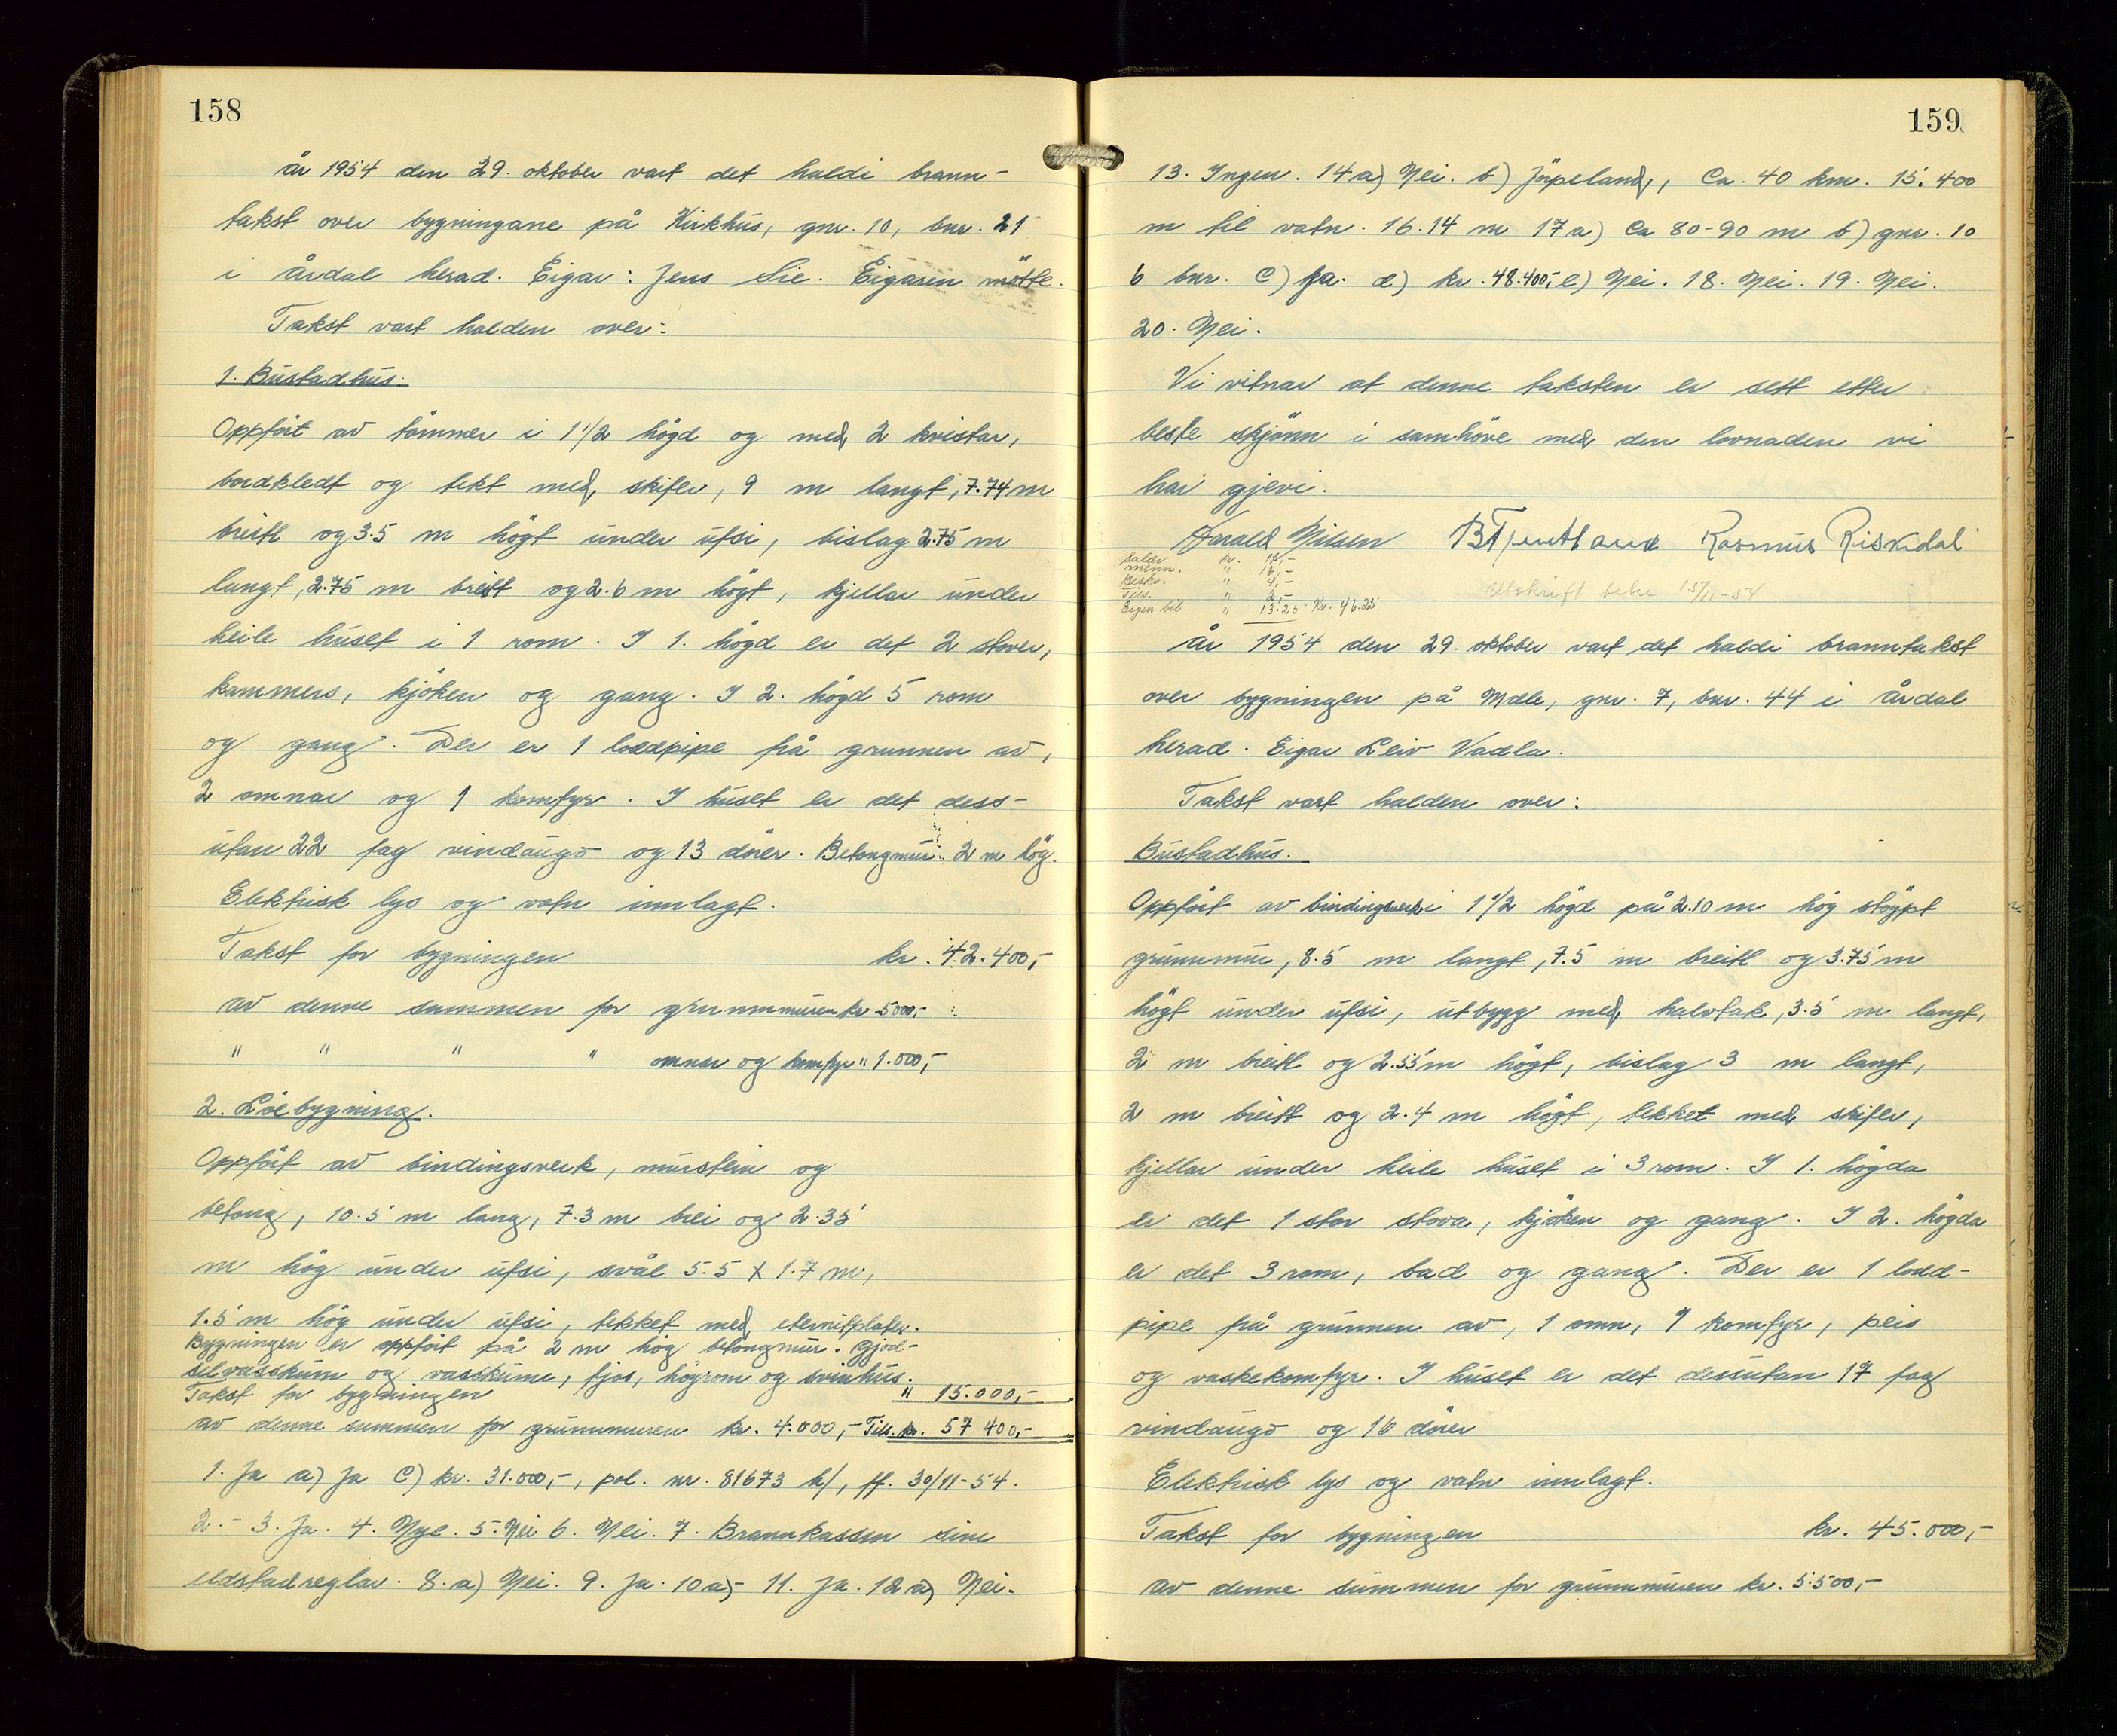 158
år 1954 den 29. oktober vart det haldi brann-
takst over bygningane på Kirkhus, gnr. 10, bnr. 21
i årdal herad. Eigar: Jens Lie. Eigaren mötte.
Takst vart halden over:
1. Bustadhus.
Oppfört av tömmer i 1 1/2 högd og med 2 kvistar,
bordkledt og tekt med skifer, 9 m langt, 7.74 m
breitt og 3.5 m högt under ufsi, bislag 2.75 m
langt, 2.75 m breitt og 2.6 m högt, kjellar under
heile huset i 1 rom. I 1. högd er det 2 stover,
kammers, kjöken og gang. I 2. högd 5 rom
og gang. Der er 1 loddpipe frå grunnen av,
2 omnar og 1 komfyr. I huset er det dess-
utan 22 fag vindaugo og 13 dörer. Betongmur 2 m hög.
Elektrisk lys og vatn innlagt.
Takst for bygningen kr. 42.400,-
av denne summen for grunnmuren kr 5000,-
" " " " omnar og komfyr " 1.000,-
2. Löebygning.
Oppfört av bindingsverk, murstein og
betong, 10.5 m lang, 7.3 m brei og 2.35
m hög under ufsi, svål 5.5 x 1.7 m,
1.5 m hög under ufsi, tekket med eternitplater.
Bygningen er oppfört på 2 m hög betongmur. Gjöd-
selvasskum og vasskume, fjos, höyrom og svinhus.
Takst for bygningen " 15.000,-
av denne summen for grunnmuren kr. 4.000,- Tils. kr. 57 400,-
1. Ja a) Ja c) kr. 31.000,-, pol. nr. 81673 h/, ff. 30/11-54.
2.- 3. Ja. 4. Nye. 5. Nei 6. Nei. 7. Brannkassen sine
eldstadreglar. 8. a) Nei. 9. Ja. 10 a)- 11. Ja. 12 a) Nei.
159
13. Ingen. 14 a) Nei. b) Jöpeland, Ca. 40 km. 15. 400
m til vatn. 16. 14 m 17 a) Ca 80-90 m b) gnr. 10
6 bnr. c) Ja. d) kr. 48.400,- e) Nei. 18. Nei. 19. Nei.
20. Nei.
Vi vitnar at denne taksten er sett etter
beste skjönn i samhöve med den lovnaden vi
har gjevi.
Harald Nilsen Rasmus Riskedal
kr. 12,-
menn. " 16,-
Beskr. " 4,-
Tils. " 2,-
Eigen bil " 13.25 Kr. 46.25
Utskrift 15/11-54
år 1954 den 29. oktober vart det haldi branntakst
over bygningen på Mæle, gnr. 7, bnr. 44 i årdal
herad. Eigar Leiv Vadla.
Takst vart halden over:
Bustadhus.
Oppfört av bindingsverk i 1 1/2 högd på 2.10 m hög stöypt
grunnmur, 8.5 m langt, 7.5 m breitt og 3.75 m
högt under ufsi, utbygg med halvtak, 3.5 m langt,
2 m breitt og 2.55 m högt, bislag 3 m langt,
2 m breitt og 2.4 m högt, tekket med skifer,
kjellar under heile huset i 3 rom. I 1. högda
er det 1 stor stova, kjöken og gang. I 2. högda
er det 3 rom, bad og gang. Der er 1 lodd-
pipe frå grunnen av, 1 omn, 1 komfyr, peis
og vaskekomfyr. I huset er det dessutan 17 fag
vindaugo og 16 dörer
Elektrisk lys og vatn innlagt.
Takst for bygningen kr. 45.000,-
av denne summen for grunnmuren kr. 5.500,-